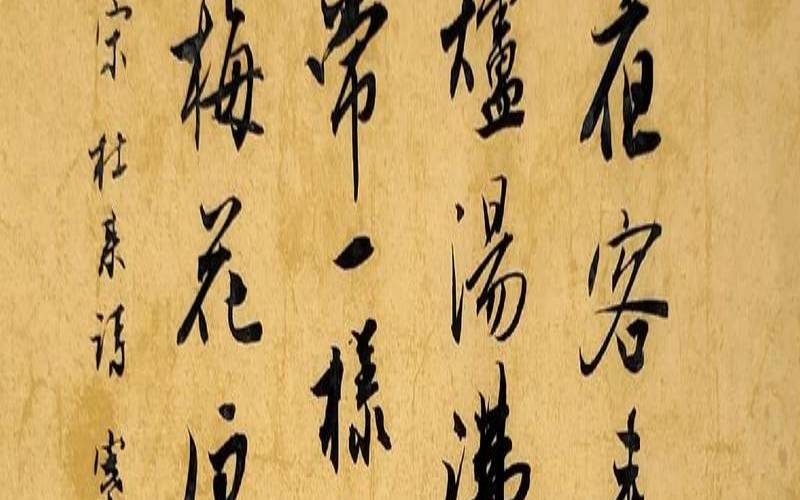 夜客
爐湯沸
常一樣
梅花便
宋杜耒詩 寒